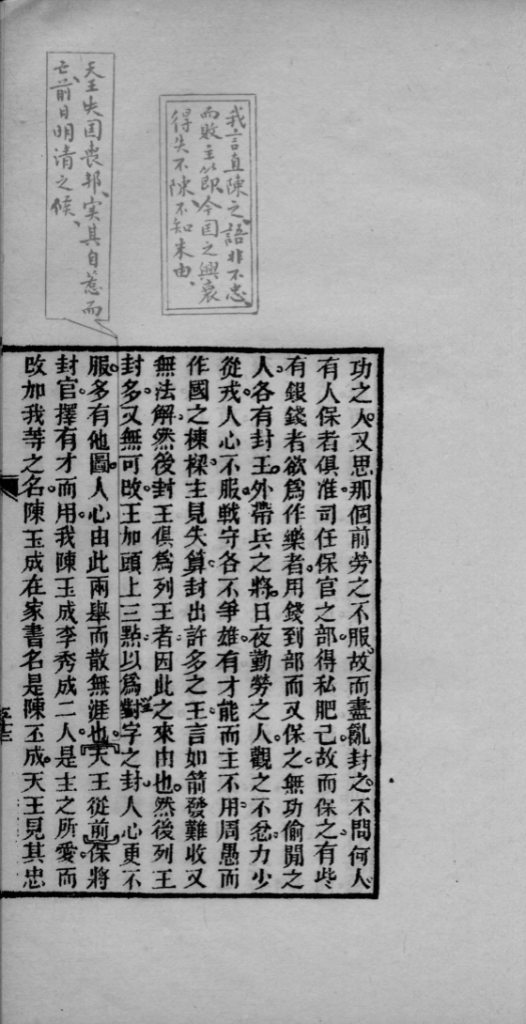 我言直陳之、語非不忠、
而敗主以即今国之興衰
得失不陳、不知來由、
天王失国喪邦、实其自惹而
亡、前日明清之候、
功之人又思那個前勞之不服故而盡亂封之不問何人
有人保者俱准司任保官之部得私肥己故而保之有些
有銀錢者欲爲作樂者用錢到部而又保之無功偷閒之
人各有封王外帶兵之將日夜勤勞之人觀之不忿力少
從戎人心不服戰守各不爭雄有才能而主不用周愚而
作國之棟樑主見失算封出許多之王言如箭發難收又
無法解然後封王俱爲列王者因此之來由也然後列王
封多又無可改王加頭上三點以爲𡈽字之封人心更不
服多有他圖人心由此兩舉而散無涯也天王從前保將
封官擇有才而用我陳玉成李秀成二人是主之所愛而
改加我等之名陳玉成在家書名是陳丕成天王見其忠